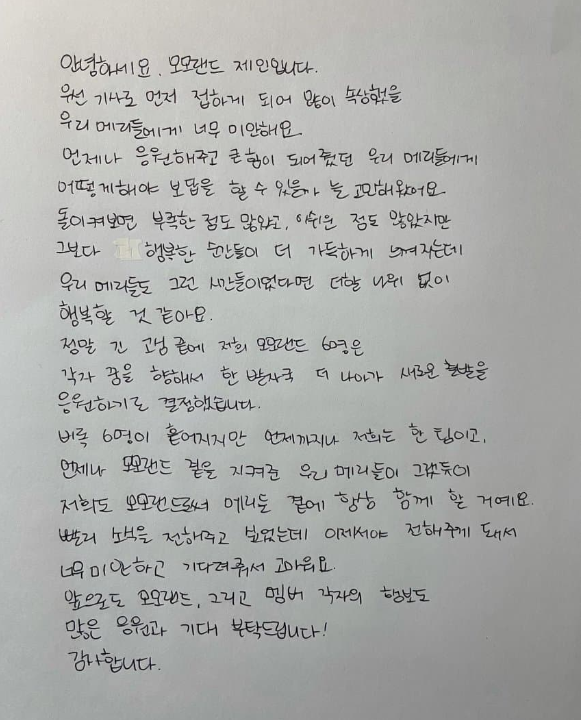 안녕하세요, 모모랜드 제인입니다.
우선 기사로 먼저 접하게 되어 많이 속상했을
우리 메리들에게 너무 미안해요
언제나 응원해주고 큰힘이 되어줬던 우리 메리들에게
어떻게해야 보답을 할 수 있을까 늘 고민해왔어요
돌이켜보면 부족한 점도 많았고, 아쉬운 점도 많았지만
그보다 행복한 순간들이 더 가득하게 느껴지는데
우리 메리들도 그런 시간들이었다면 더할 나위 없이
행복할 것 같아요.
정말 긴 고심 끝에 저희 모모랜드 6명은
각자 꿈을 향해서 한 발자국 더 나아가 새로운 출발을
응원하기로 결정했습니다.
비록 6명이 흩어지지만 언제까지나 저희는 한 팀이고,
언제나 모모랜드 곁을 지켜준 우리 메리들이 그랬듯이
저희도 모모랜드로써 메리들 곁에 항상 함께 할 거예요.
빨리 소식을 전해주고 싶었는데 이제서야 전해주게 돼서
너무 미안하고 기다려줘서 고마워요.
앞으로도 모모랜드, 그리고 멤버 각자의 행보도
많은 응원과 기대 부탁드립니다!
감사합니다.